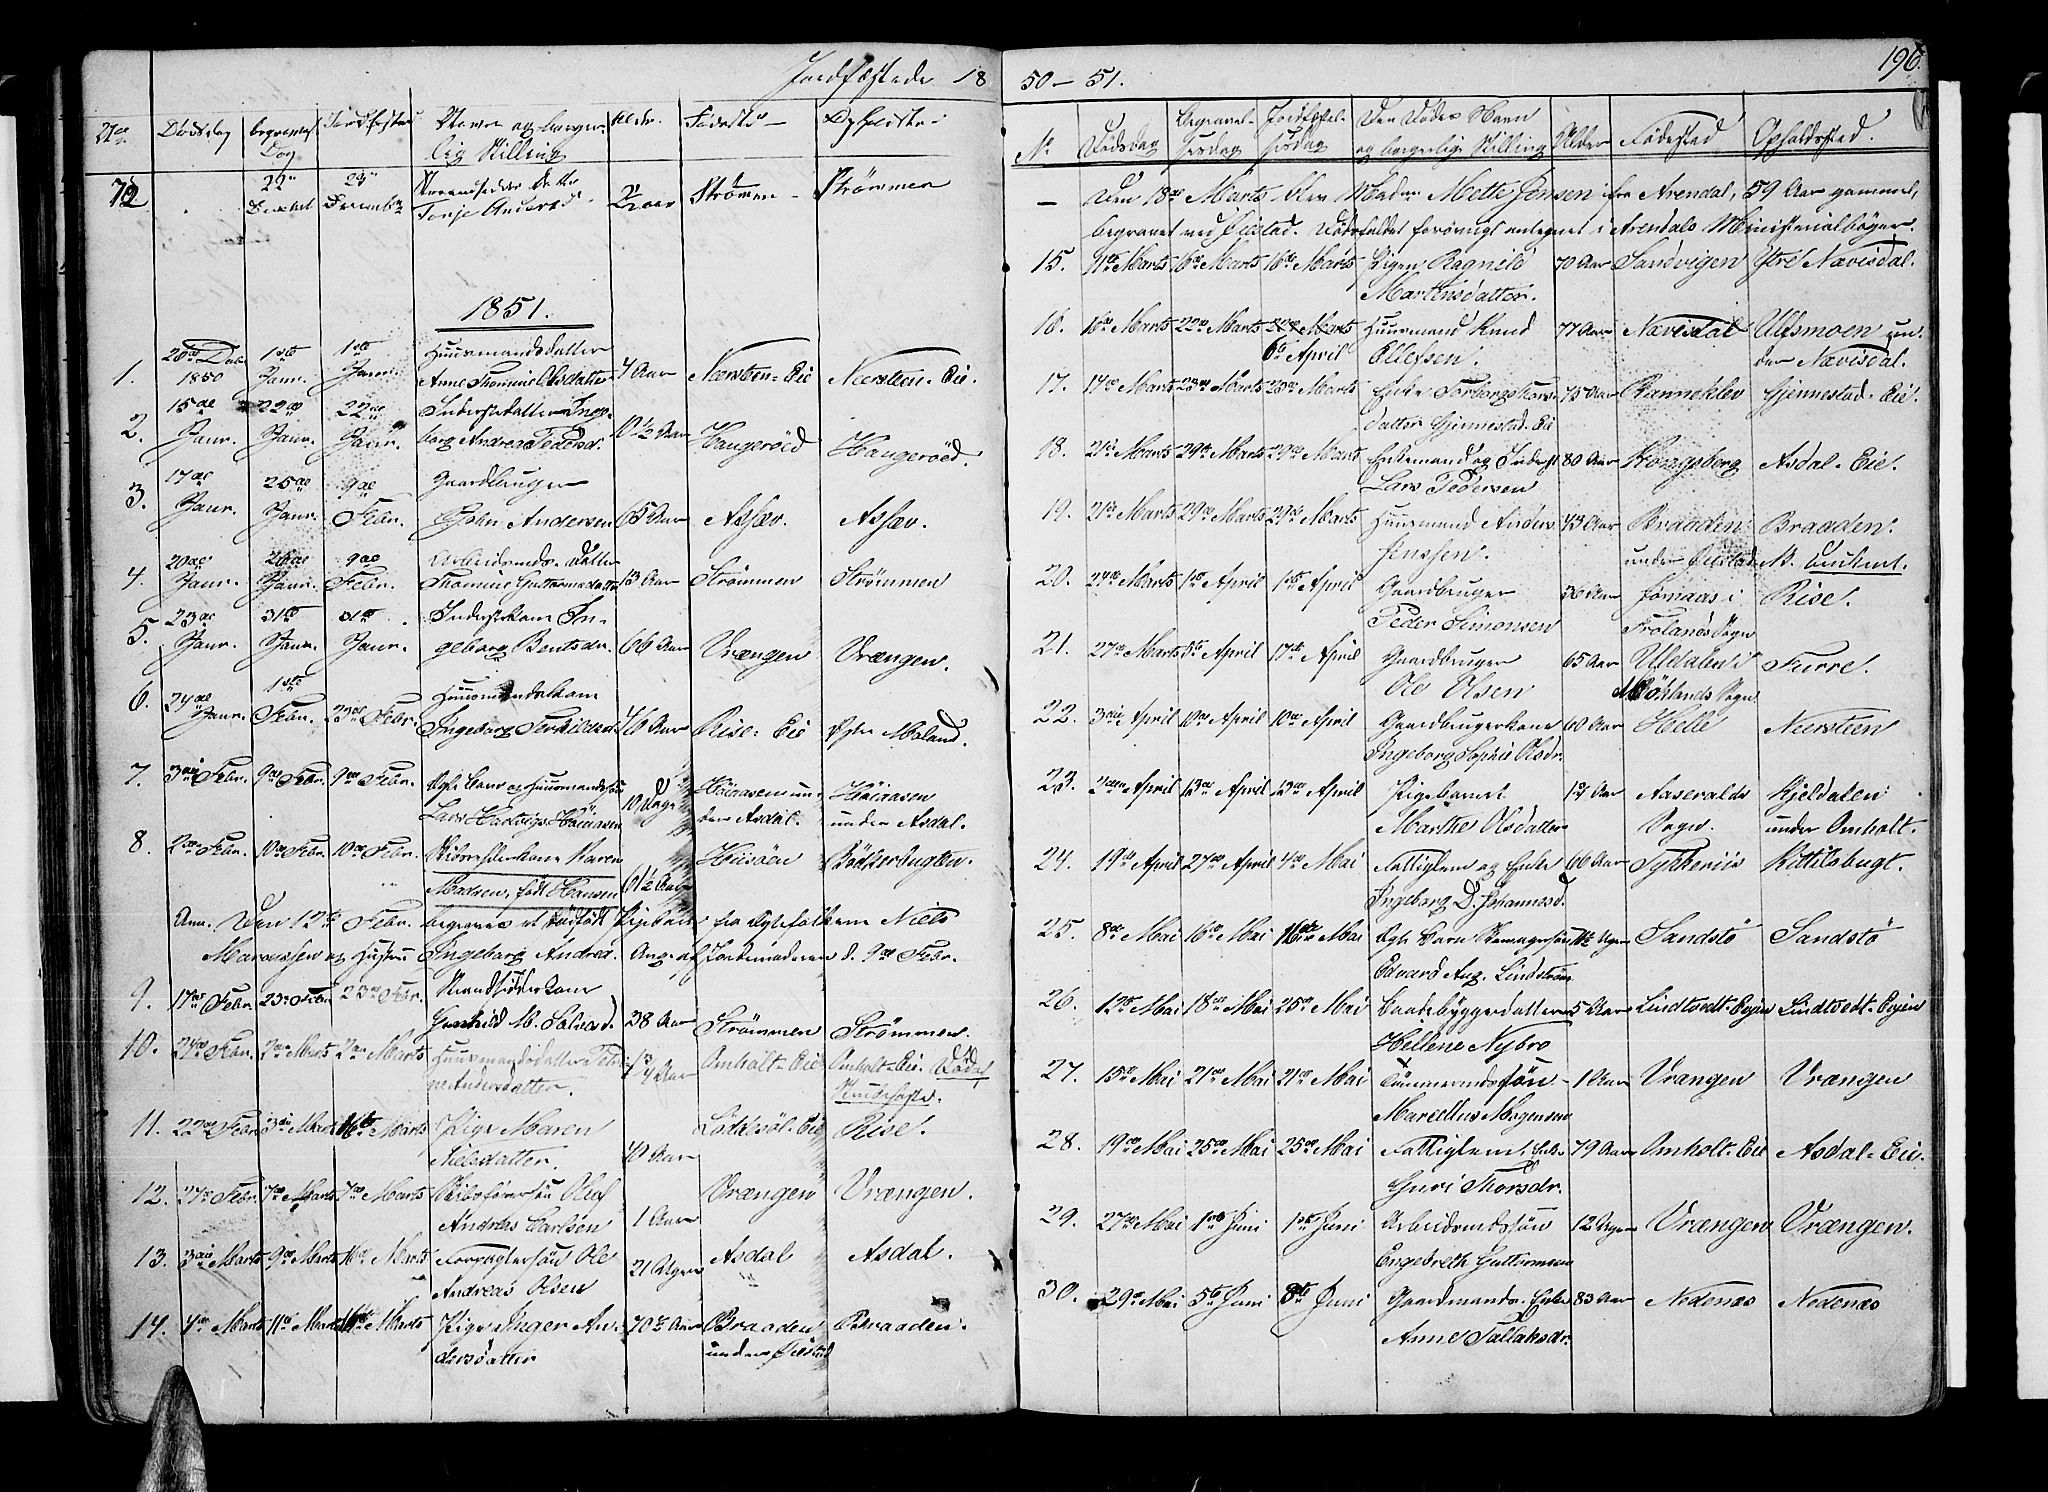 Jordfæstede 18
50 – 51.
196.
No Dødsdag begravelses Dag Jordfæstes Navn og borgerlig Stilling Alder Fødested Opholdssted
72 22de December 29de December Strandsidder Terje Anders Strømmen Strømmen
1851.
1. 28de Decbr 1850 1ste Janur. 1ste Janur. Huusmandsdatter Anne Thomine Olsdatter 4 Aar Neersteen-Eie Neersteen-Eie.
2. 15de Janur. 22de Janur. 22de Janur. Inderstdatter Ingeborg Andrea Pedersd. 10 1/2 Aar Haugeröed Haugeröed.
3. 17de Janur. 25de Janur. 9de Febr. Gaardbruger John Andersen 65 Aar Assæv. Assæv.
4. 20de Janur. 26de Janur. 9de Febr. Arbeidsmds. Datter Thomine Guttormsdatter 13 Aar Strömmen Strömmen
5. 23de Janur. 31te Janur. 31te Janur. Inderstkone Ingeborg Bentsdr. 66 Aar Vrængen Vrængen.
6. 24de Janur. 1ste Febr. 23de Febr. Huusmandskone Ingeborg Terkildsd. 46 Aar Rise-Eie Öjte Moland.
7. 3die Febr. 9de Febr. 9de Febr. Ægte Barn af Huusmandsfolk Lars Hartvigs. Höiaasen 10 Dage Höiaasen under Asdal. Höiaasen under Asdal.
8. 2den Febr. 10de Febr. 10de Febr. Skibsrhederkone Karen Madsen, født Hansen 61 1/2 Aar Hiisöen Bökkerbugten.
Anm. Den 12te Febr. begraves et dødfødt Pigebarn fra Ægtefolkene Niels
Marcussen og Hustru Ingeborg Andread. Ang. af Jordemoderen d. 9de Febr.
9. 17de Febr. 23de Febr. 23de Febr. Strandsidderkone Gunhild M. Salvesd. 38 Aar Strömmen Strömmen.
10. 24de Febr. 2den Marts 2den Marts Huusmandsdatter Petrine Andersdatter. 1 3/4 Aar Omholt-Eie Omholt-Eie.
11. 22de Febr. 3die Marts 16de Marts Pige Maren Nielsdatter. 40 Aar Löddesöl-Eie Rise.
12. 27de Febr. 7de Marts 7de Marts Skibsförersön Oluf Andreas Carlsen 1 Aar Vrængen Vrængen.
13. 3die Marts 9de Marts 16de Marts Forpagtersön Ole Andreas Olsen 21 Uger Asdal Asdal.
14. 4de Marts 11te Marts 16de Marts Pige Inger Andersdatter 70 1/2 Aar Braaden under Öiestad Braaden.
No Dødsdag Begravelsesdag Jordfæstelsesdag Den Dødes Navn og borgerlige Stilling Alder Fødested Opholdssted.
– Den 18de Marts blev Madm Mette Jensen fra Arendal, 59 Aar gammel,
begravet ved Öiestad. Dødsfaldet forøvrigt antegnet i Arendals Ministerialbøger.
15. 11te Marts 16de Marts 16de Marts Pigen Ragnild Martinsdatter. 70 Aar Sandvigen Ytre Nævisdal.
16. 16de Marts 22de Marts 22de Marts 6te April Huusmand Knud Ellefsen. 77 Aar Nævisdal Ulfsmoen under Nævisdal.
17. 17de Marts 23de Marts 23de Marts Enke Torborg Thorsdatter Gjennestad-Eie 75 Aar Ranneklev Gjennestad-Eie.
18. 21de Marts 29de Marts 29de Marts Enkemand og Inderst Lars Pedersen 80 Aar Kongsberg Asdal-Eie.
19. 21de Marts 29de Marts 29de Marts Huusmand Anders Jenssen. 43 Aar Braaden under Öiestad Braaden.
20. 24de Marts 1ste April 1ste April Gaardbruger Peder Simonsen 36 Aar Fornaas i Frolands Sogn Rise.
21. 27de Marts 5te April 17de April Gaardbruger Ole Olsen 65 Aar Uldalen i Mörlands Sogn Furre.
22. 3die April 10de April 10de April Gaardbrugerkone Ingeborg Sophie Olsdr. 60 Aar Helle Neersteen
23. 2den April 13de April 13de April Pigebarnet Marthe Olsdatter 1 Aar Aaseralds Sogn. Kjeldalen under Omholt.
24. 19de April 27de April 4de Mai Fattiglem og Enke Ingeborg D. Johannesd. 66 Aar Tykkeniis Kittilsbugt.
25. 8de Mai 16de Mai 16de Mai Ægte Barn Edvard Aug. Lindström Uger Sandstö Sandstö
26. 12te Mai 18de Mai 25de Mai Baadebyggerdatter Hellene Nybro 5 Aar Lindtvedt-Eyen Lindtvedt-Eyen
27. 15de Mai 21de Mai 21de Mai Tömmermdssön Marcellus Mogensen 1 Aar Vrangen Vrængen
28. 19de Mai 25de Mai 25de Mai Fattiglem, Enke Guri Thorsdr. 79 Aar Omholt-Eie Asdal-Eie.
29. 27de Mai 1ste Juni 1ste Juni Arbeidsmdssön Engebreth Guttormsen 12 Uger Vrængen Vrængen.
30. 29de Mai 5te Juni 8de Juni Gaardmands-Enke Anne Tallaksdr. 83 Aar Nedenæs Nedenæs